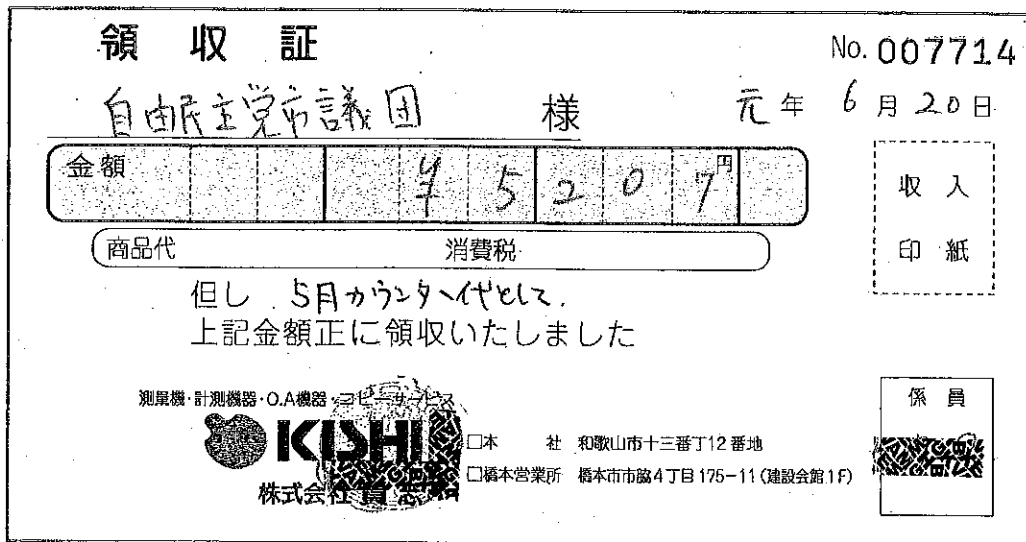 領収証
No. 007714
自由民主党市議団 様
元年 6月20日
金額 ¥5207円
収入
印紙
商品代 消費税
但し 5月カウンター代として.
上記金額正に領収いたしました
測量機・計測機器・O.A機器・コピーサービス
KISHI
株式会社
□本社 和歌山市十三番丁12番地
□橋本営業所 橋本市市脇4丁目175-11(建設会館1F)
係員